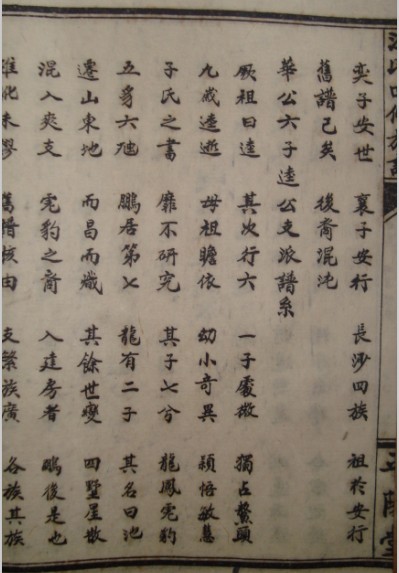 奕子安世 襄子安行 長沙四族 祖於安行
舊譜已矣 後裔混沌
華公六子逵公支派譜系
厥祖曰逵 其次行六 一子處微 獨占鰲頭
九歲逵逝 母祖瞻依 幼小奇異 穎悟敏慧
子氏之書 靡不研究 其子七兮 龍鳳虎豹
五身六 鵬居第七 龍有二子 其名曰池
遷山東地 而昌而熾 其餘世變 四墅星散
混入爽支 虎豹之裔 入逵房者 鵬後是也
支繁族廣 各族其族